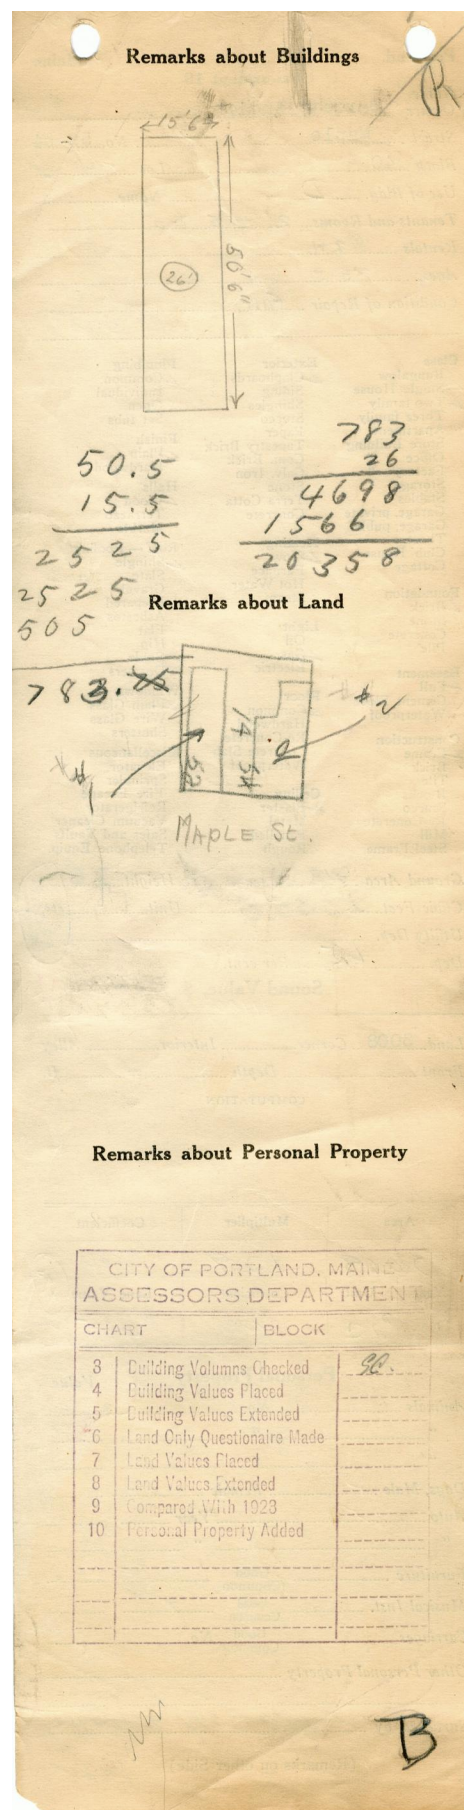 Remarks about Buildings
R
15'6"
50'6"
26'
50.5
15.5
2525
2525
505
783.75
783
26
4698
1566
20358
Remarks about Land
#2
#1
52
14
54
MAPLE St.
Remarks about Personal Property
CITY OF PORTLAND, MAINE
ASSESSORS DEPARTMENT
CHART BLOCK
3 Building Volumns Checked
4 Building Values Placed
5 Building Values Extended
6 Land Only Questionaire Made
7 Land Values Placed
8 Land Values Extended
9 Compared With 1923
10 Personal Property Added
B